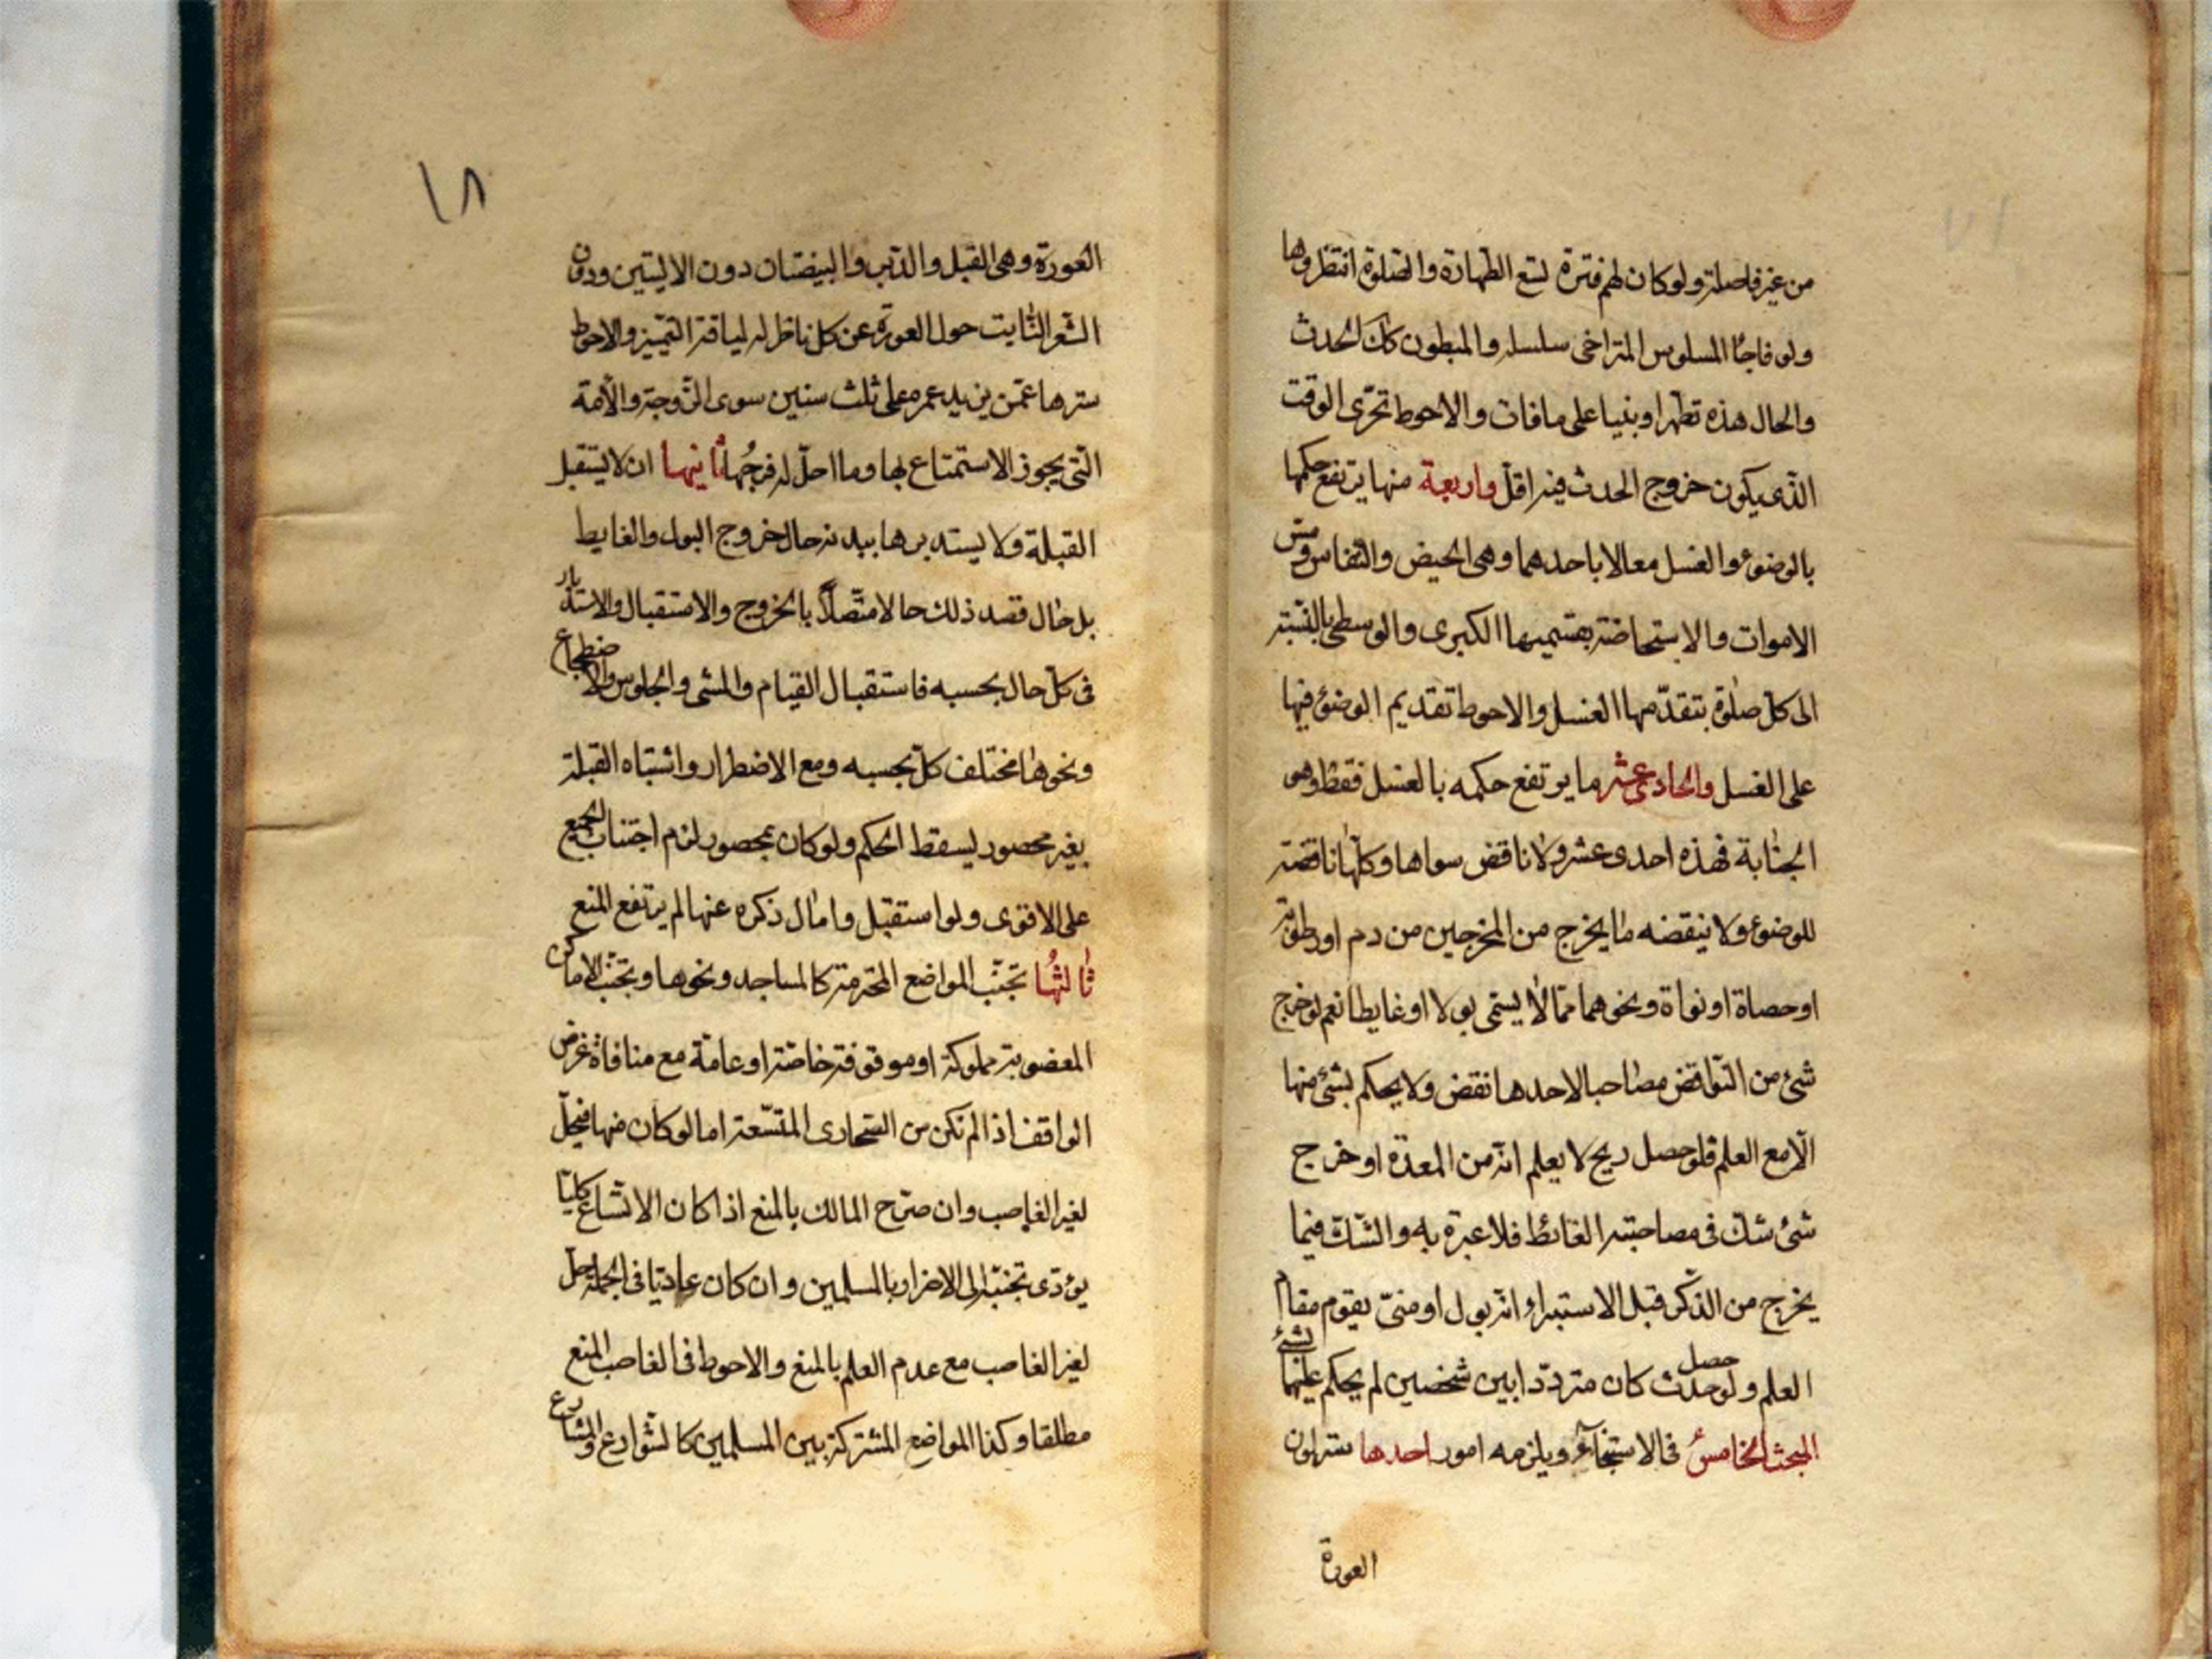 من غير فاصلة ولو كان لهم فترة تسع الطهارة والصلوة انتظروها
ولو فاجأ المسلوس المتراخى سلسله والمبطون كك الحدث
والحال هذه تطهرا وبنيا على مافات والاحوط تحرّى الوقت
الذّى يكون خروج الحدث فيه اقلّ واربعة منها يرتفع حكمها
بالوضوء والغسل معا لا باحدهما وهى الحيض والنفاس ومس
الاموات والاستحاضة بقسميها الكبرى والوسطى بالنّسبة
الى كلّ صلوة يتقدّمها الغسل والاحوط تقديم الوضوء فيها
على الغسل والحادى عشر ما يرتفع حكمه بالغسل فقط وهى
الجنابة فهذه احدى عشر ولا ناقض سواها وكلّها ناقضة
للوضوء ولا ينقضه ما يخرج من المخرجين من دم او رطوبة
او حصاة او نواة ونحوهما ممّا لا يسمّى بولا او غايطا نعم لو خرج
شئ من النّواقض مصاحبا لاحدها نقض ولا يحكم بشئ منها
الّا مع العلم فلو حصل ريح لا يعلم انّه من المعدة او خرج
شئ شكّ فى مصاحبته الغائط فلا عبرة به والشّكّ فيما
يخرج من الذّكر قبل الاستبراء انّه بول او منىّ يقوم مقام
العلم ولو حصل حدث كان متردّدا بين شخصين لم يحكم عليهما بشئ
المبحث الخامس فى الاستنجاء ويلزمه امور احدها ستر لون
العورة
١٨
العورة وهى القبل والدّبر والبيضتان دون الاليتين ودون
الشّعر النّابت حول العورة عن كلّ ناظر له لياقة التميّز والاحوط
سترها عمّن يزيد عمره على ثلث سنين سوى الزّوجة والأمة
الّتى يجوز الاستمتاع بها وما احلّ له فرجُها ثانيها ان لا يستقبل
القبلة ولا يستدبرها ببدنه حال خروج البول والغايط
بل حال قصد ذلك حالا متّصلًا بالخروج والاستقبال والاستدبار
فى كلّ حال بحسبه فاستقبال القيام والمشى والجلوس والاضطجاع
ونحوها مختلف كلّ بحسبه ومع الاضطرار واشتباه القبلة
بغير محصور يسقط الحكم ولو كان بمحصور لزم اجتناب الجميع
على الاقوى ولو استقبل وامال ذكره عنها لم يرتفع المنع
ثالثها تجنّب المواضع المحترمة كالمساجد ونحوها وتجنّب الاماكن
المغصوبة مملوكة او موقوفة خاصّة او عامّة مع منافاة غرض
الواقف اذا لم تكن من الصّحارى المتّسعة اما لو كان منها فيحلّ
لغير الغاصب وان صرّح المالك بالمنع اذا كان الاتّساع كليّا
يؤدّى تجنّبه الى الاضرار بالمسلمين وان كان عاديّا فى الجملة حلّ
لغير الغاصب مع عدم العلم بالمنع والاحوط فى الغاصب المنع
مطلقا وكذا المواضع المشتركة بين المسلمين كالشّوارع والمشارع